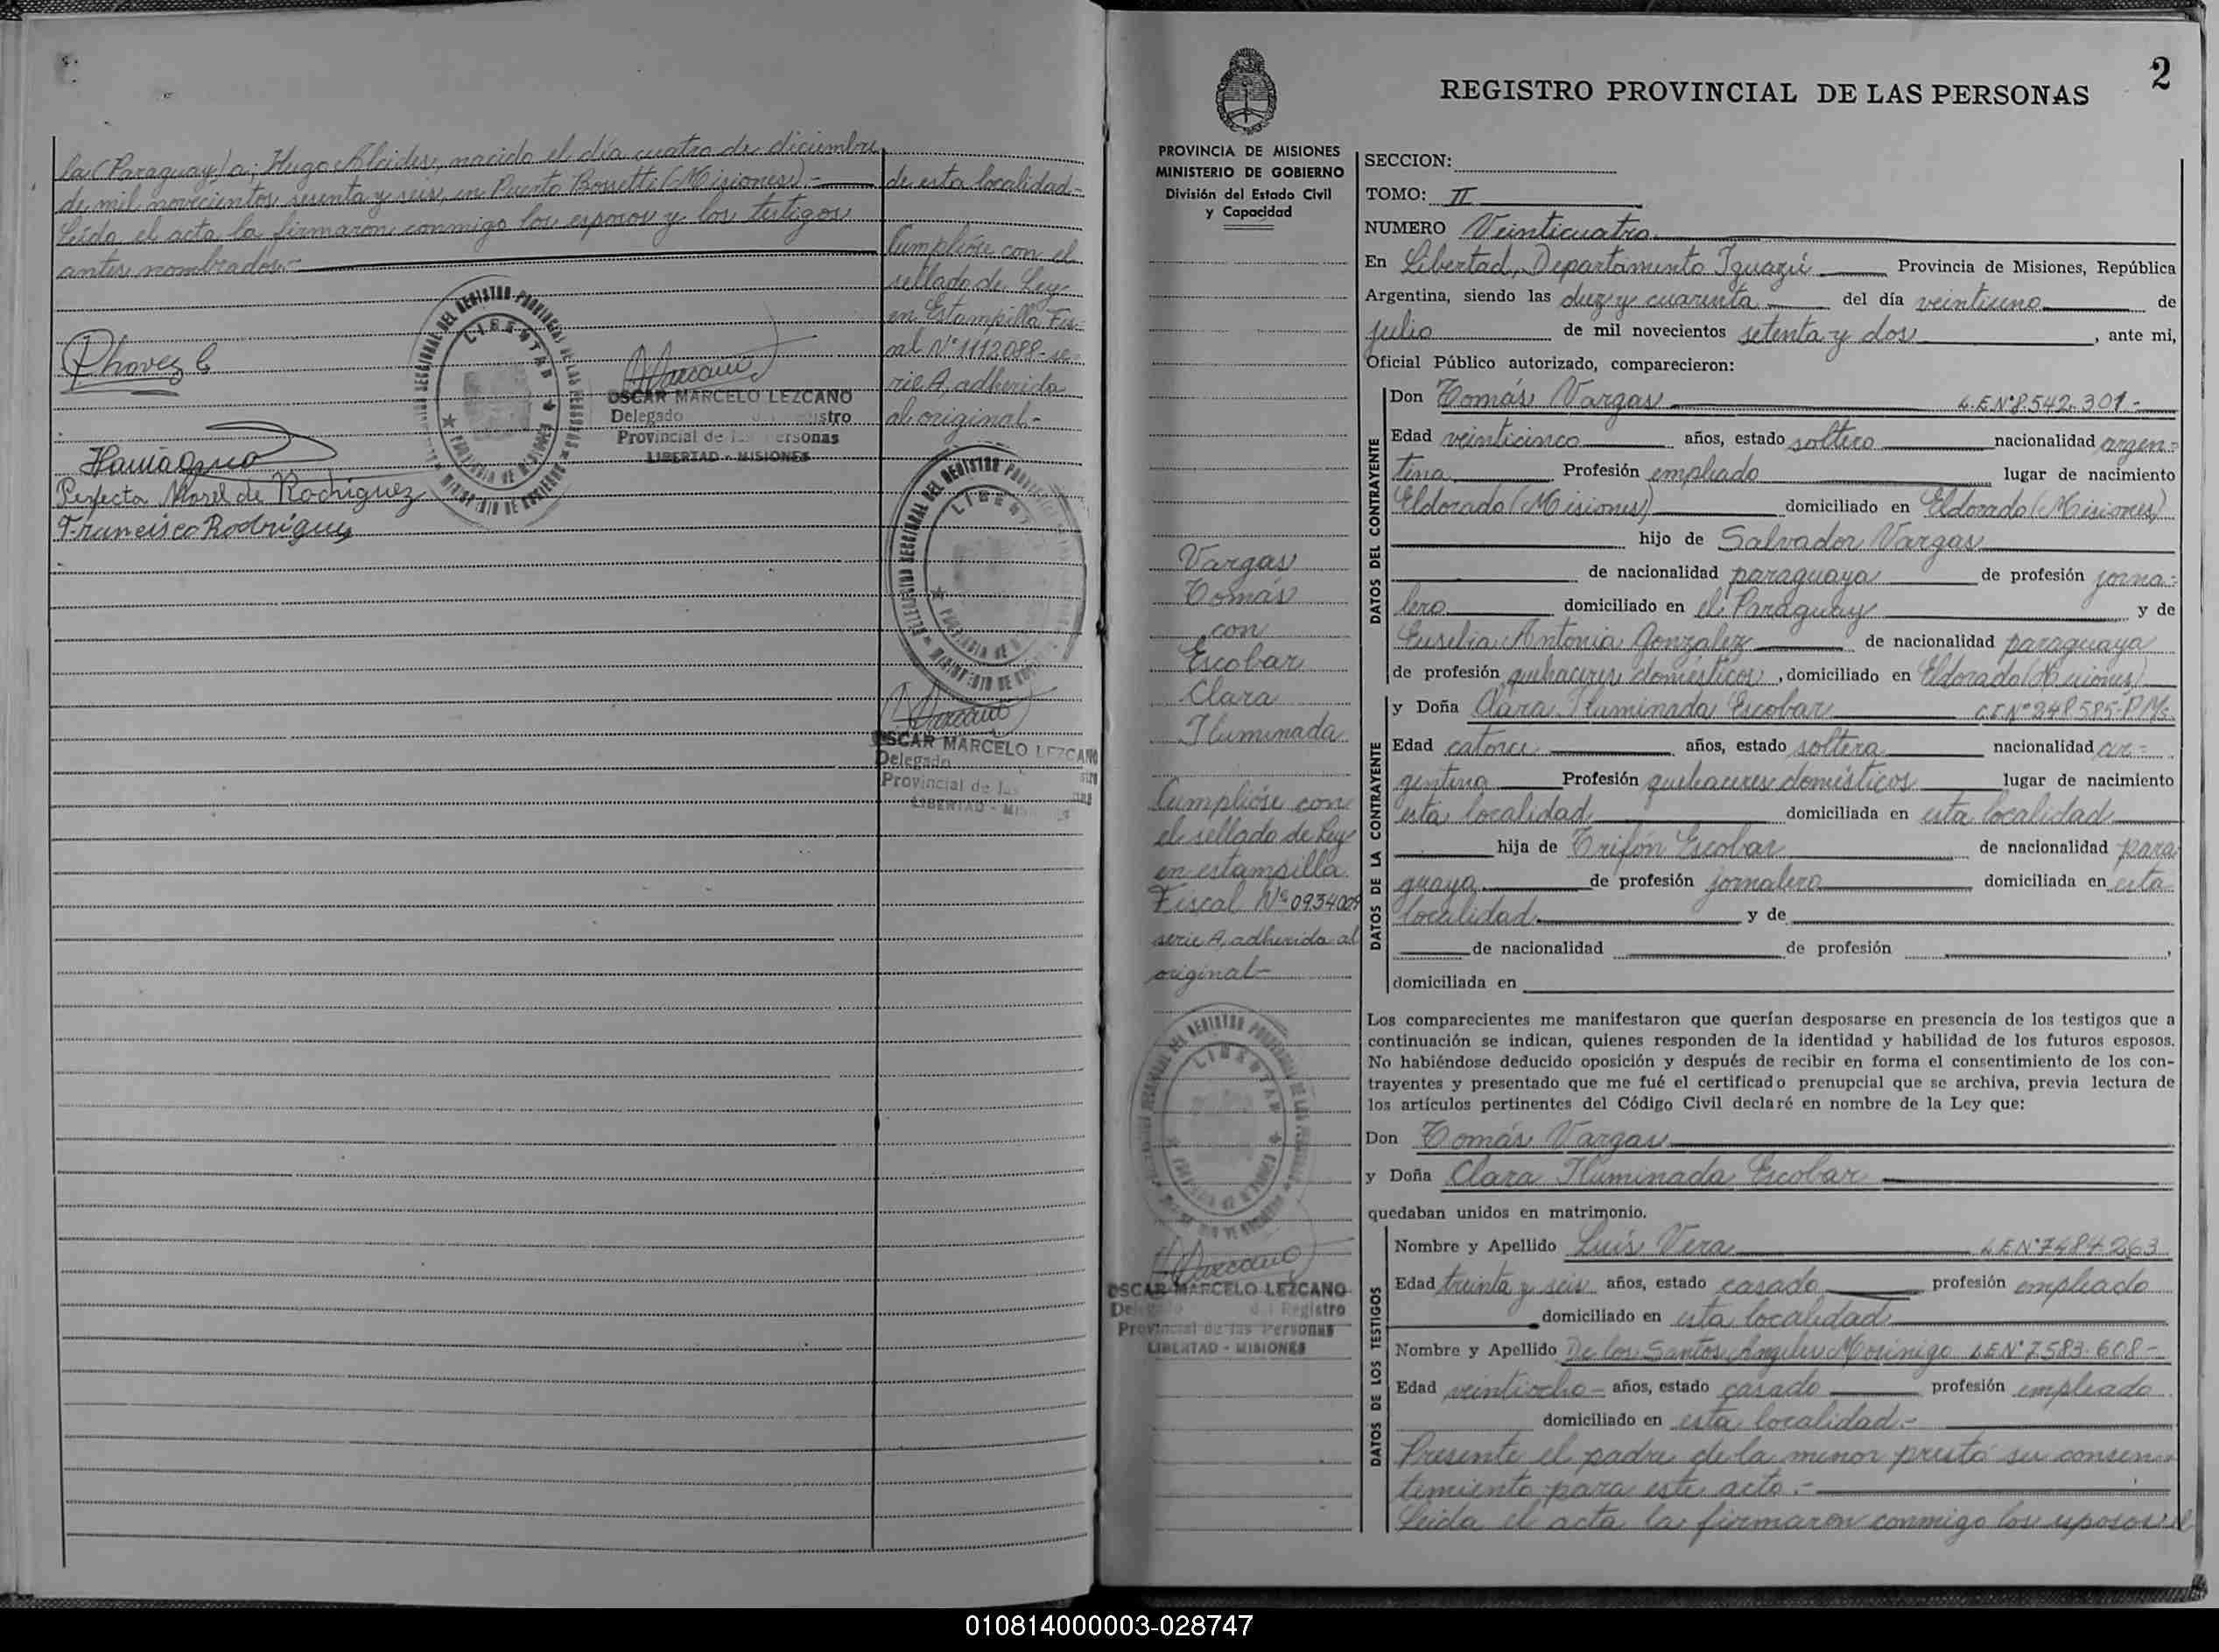 la (Paraguay) a; Hugo Alcides, nacido el día cuatro de diciembre
de mil novecientos sesenta y seis, en Puerto Bossetti (Misiones).-
Leída el acta la firmaron conmigo los esposos y los testigos
antes nombrados.-
de esta localidad.-
Cumplióse con el
sellado de Ley
en Estampilla Fis-
cal Nº 1112088- se-
rie A, adherida
al original.-
OSCAR MARCELO LEZCANO
Delegado
Provincial de las Personas
LIBERTAD - MISIONES
Perfecta Morel de Rodriguez
Francisco Rodrigues
OSCAR MARCELO LEZCANO
Delegado
Provincial de las
LIBERTAD - MISIONES
2
REGISTRO PROVINCIAL DE LAS PERSONAS
PROVINCIA DE MISIONES
MINISTERIO DE GOBIERNO
División del Estado Civil
y Capacidad
Vargas
Tomás
con
Escobar
Clara
Iluminada
Cumplióse con
el sellado de Ley
en estampilla
Fiscal Nº 0934009
serie A, adherida al
original-
OSCAR MARCELO LEZCANO
Delegado del Registro
Provincial de las Personas
LIBERTAD - MISIONES
SECCION:
TOMO: II
NUMERO Veinticuatro
En Libertad, Departamento Iguazú Provincia de Misiones, República
Argentina, siendo las diez y cuarenta del día veintiuno de
julio de mil novecientos setenta y dos, ante mi,
Oficial Público autorizado, comparecieron:
DATOS DEL CONTRAYENTE
Don Tomás Vargas L.E.Nº 8.542.301-
Edad veinticinco años, estado soltero nacionalidad argen-
tina Profesión empleado lugar de nacimiento
Eldorado (Misiones) domiciliado en Eldorado (Misiones)
hijo de Salvador Vargas
de nacionalidad paraguaya de profesión jorna-
lero domiciliado en el Paraguay y de
Antonia Gonzalez de nacionalidad paraguaya
de profesión quehaceres domésticos, domiciliado en Eldorado (Misiones)
DATOS DE LA CONTRAYENTE
y Doña Clara Iluminada Escobar C.I.Nº 248585-P.Ms.
Edad catorce años, estado soltera nacionalidad ar-
gentina Profesión quehaceres domésticos lugar de nacimiento
esta localidad domiciliada en esta localidad
hija de Trifón Escobar de nacionalidad para
guaya de profesión jornalero domiciliada en esta
localidad y de
de nacionalidad de profesión ,
domiciliada en
Los comparecientes me manifestaron que querían desposarse en presencia de los testigos que a
continuación se indican, quienes responden de la identidad y habilidad de los futuros esposos.
No habiéndose deducido oposición y después de recibir en forma el consentimiento de los con-
trayentes y presentado que me fué el certificado prenupcial que se archiva, previa lectura de
los artículos pertinentes del Código Civil declaré en nombre de la Ley que:
Don Tomás Vargas
y Doña Clara Iluminada Escobar
quedaban unidos en matrimonio.
DATOS DE LOS TESTIGOS
Nombre y Apellido Luis Vera L.E.Nº 7484263
Edad treinta y seis años, estado casado profesión empleado
domiciliado en esta localidad
Nombre y Apellido De los Santos Angeles Morinigo L.E.Nº 7.583.608-
Edad veintiocho- años, estado casado profesión empleado
domiciliado en esta localidad.-
Presente el padre de la menor prestó su consen-
timiento para este acto.-
Leída el acta la firmaron conmigo los esposos el
010814000003-028747